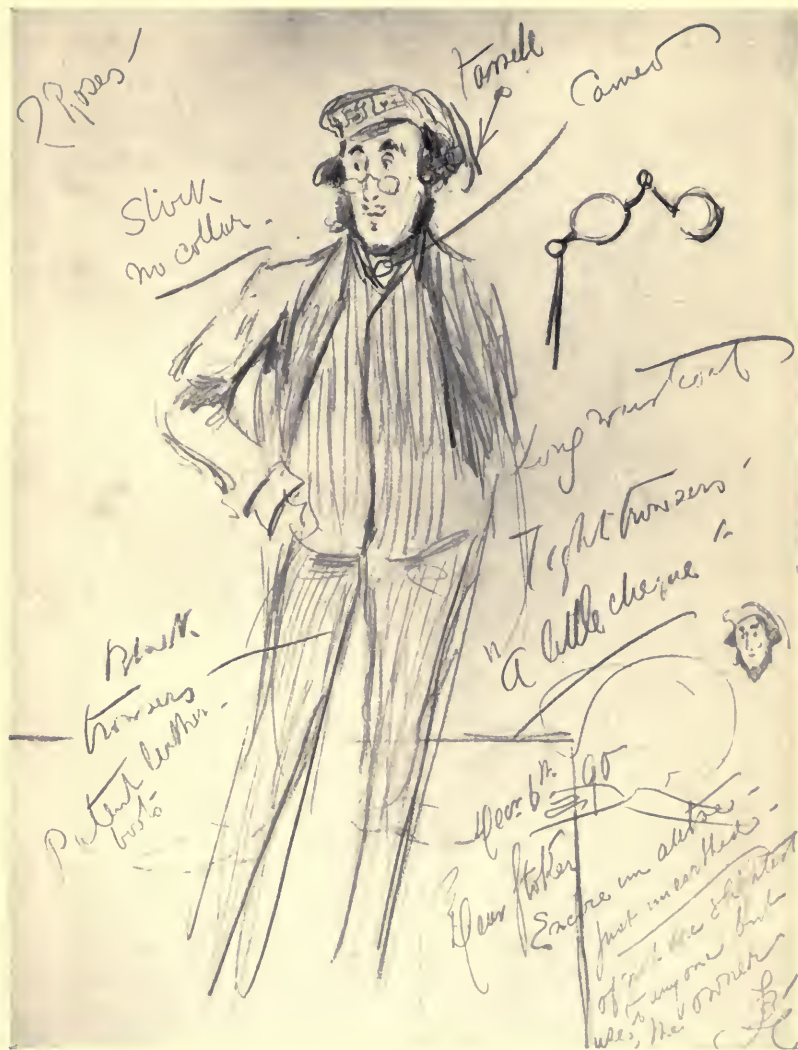 2 Roses
Tassell
Cameo
Stock
no collar.
Long waistcoat
Tight trowsers
"A little cheque"
Black
trowsers
Patent leather
boots
6th. 90
Dear Stoker
Encore un autre
just unearthed
of not the slightest
use to anyone but
the owner